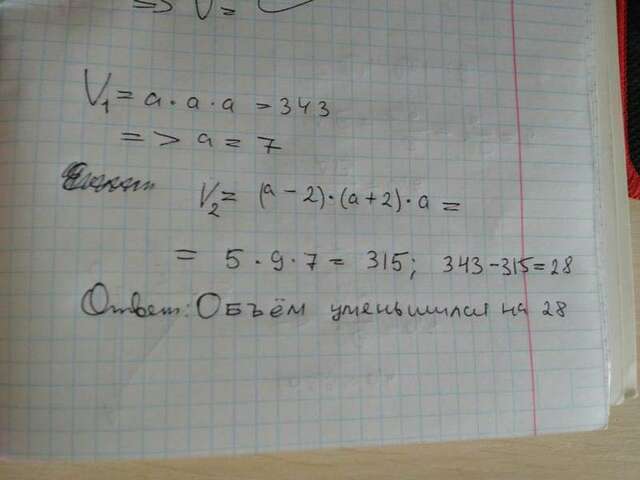 => V =
V₁ = a · a · a = 343
=> a = 7
V₂ = (a - 2) · (a + 2) · a =
= 5 · 9 · 7 = 315; 343 - 315 = 28
Ответ: Объём уменьшился на 28